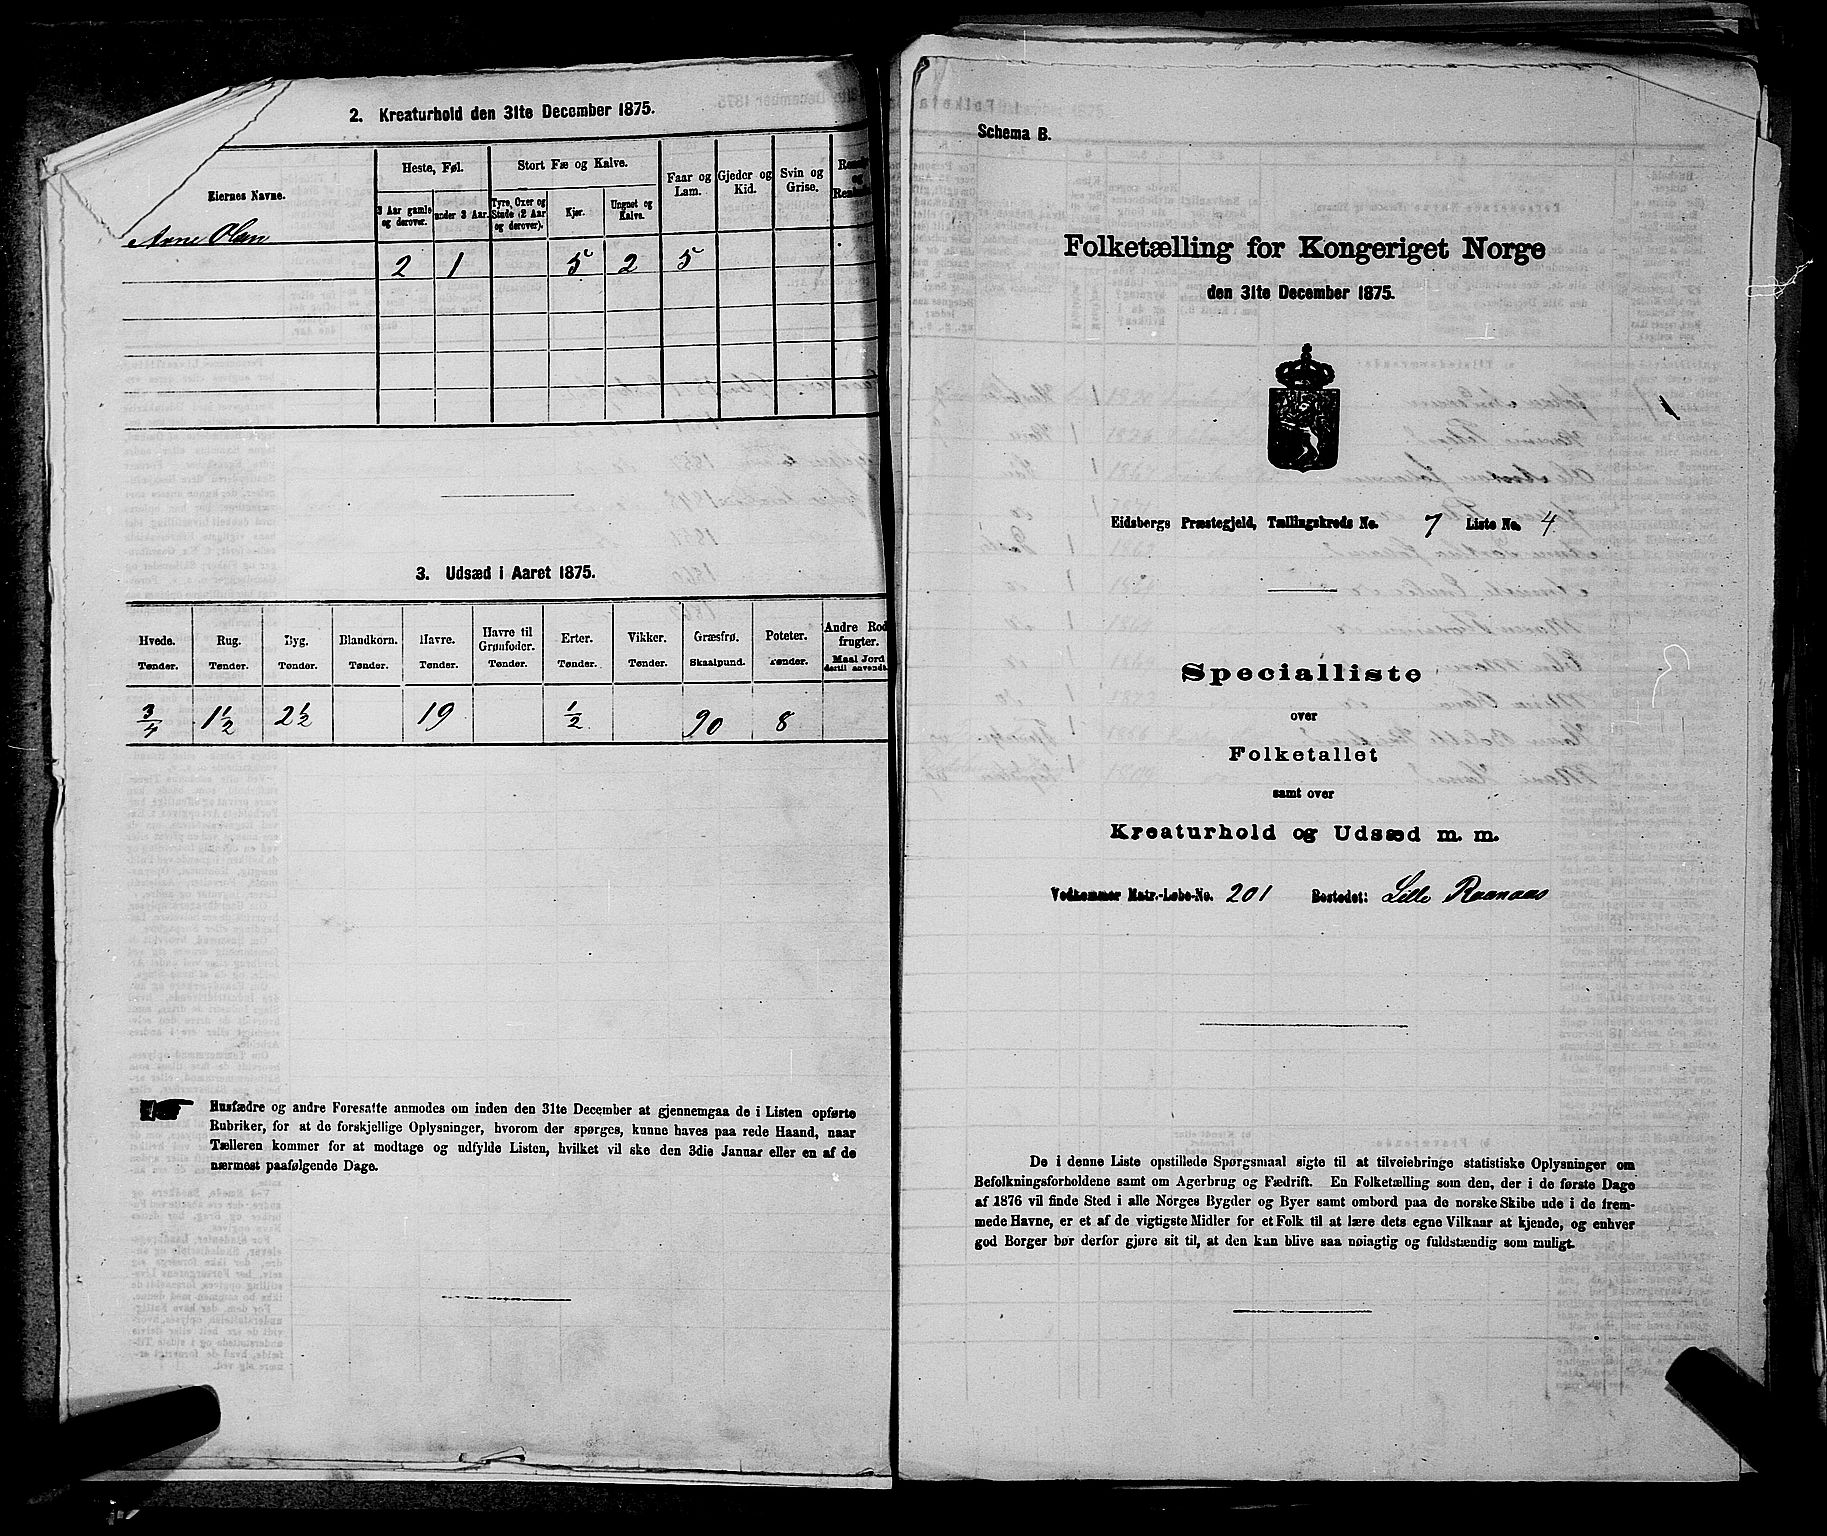 2. Kreaturhold den 31te December 1875.
Eiernes Navne.
Heste, Føl.
Stort Fæ og Kalve.
Faar og Lam.
Gjeder og Kid.
Svin og Grise.
3 Aar gamle og derover.
under 3 Aar.
Tyre, Oxer og Stude (2 Aar og derover).
Kjør.
Ungnet og Kalve.
Arne Olsen
2 1 5 2 5
3. Udsæd i Aaret 1875.
Hvede. Rug. Byg. Blandkorn. Havre. Havre til Grønfoder. Erter. Vikker. Græsfrø. Poteter. Andre Rodfrugter.
Tønder. Tønder. Tønder. Tønder. Tønder. Tønder. Tønder. Tønder. Skaalpund. Tønder. Maal Jord dertil anvendt.
3/4 1 1/2 2 1/2 19 1/2 90 8
Husfædre og andre Foresatte anmodes om inden den 31te December at gjennemgaa de i Listen opførte
Rubriker, for at de forskjellige Oplysninger, hvorom der spørges, kunne haves paa rede Haand, naar
Tælleren kommer for at modtage og udfylde Listen, hvilket vil ske den 3die Januar eller en af de
nærmest paafølgende Dage.
Schema B.
Folketælling for Kongeriget Norge
den 31te December 1875.
Eidsbergs Præstegjeld, Tællingskreds No. 7 Liste No. 4
Specialliste
over
Folketallet
samt over
Kreaturhold og Udsæd m. m.
Vedkommer Matr.-Løbe-No. 201 Bostedet: Lille Raanaas
De i denne Liste opstillede Spørgsmaal sigte til at tilveiebringe statistiske Oplysninger om
Befolkningsforholdene samt om Agerbrug og Fædrift. En Folketælling som den, der i de første Dage
af 1876 vil finde Sted i alle Norges Bygder og Byer samt ombord paa de norske Skibe ude i de frem-
mede Havne, er et af de vigtigste Midler for et Folk til at lære dets egne Vilkaar at kjende, og enhver
god Borger bør derfor gjøre sit til, at den kan blive saa nøiagtig og fuldstændig som muligt.